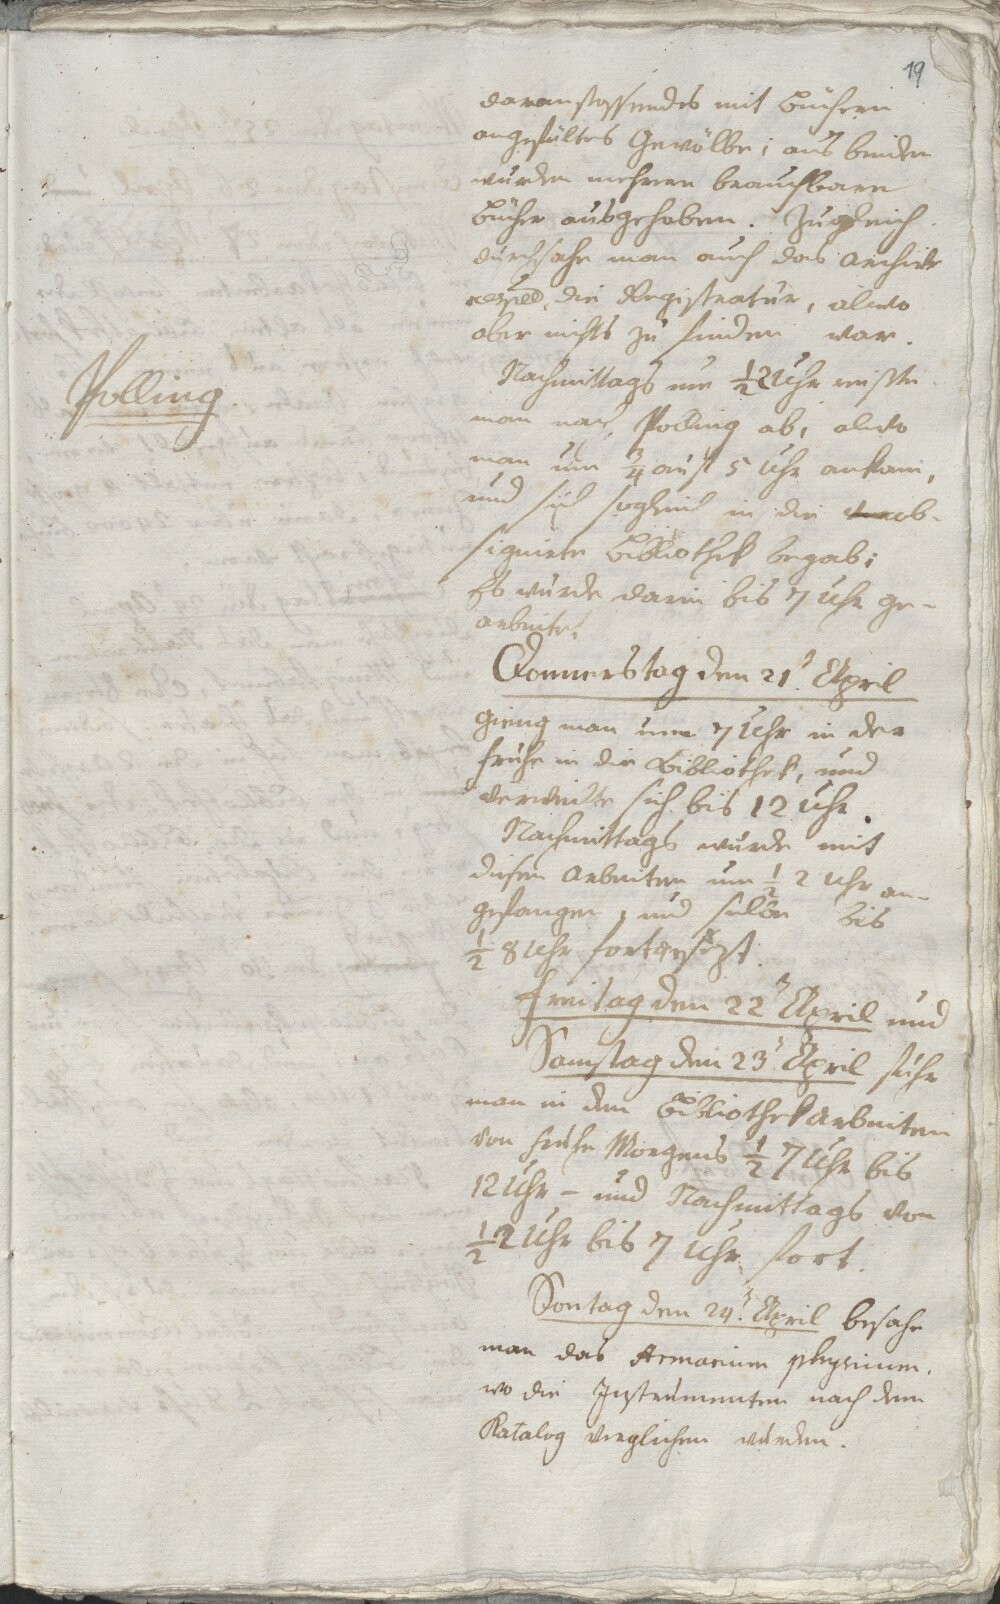 19
daranstossendes mit Büchern
angefültes Gewölbe; aus beiden
wurden mehrere brauchbare
Bücher ausgehoben. Zugleich
durchsahe man auch das Archiv
respect. die Registratur, alwo
aber nichts zu finden war.
Polling
Nachmittags um ½2 Uhr reiste
man nach Polling ab, alwo
man um ¾ auf 5 Uhr ankam,
und sich sogleich in die ob-
signirte Bibliothek begab;
Es wurde darin bis 7 Uhr ge-
arbeitet.
Donnerstag den 21t. April
gieng man um 7 Uhr in der
Frühe in die Bibliothek, und
verweilte sich bis 12 Uhr.
Nachmittags wurde mit
diesen Arbeiten um ½ 2 Uhr an-
gefangen, und selbe bis
½ 8 Uhr fortgesezt.
Freitag den 22t April und
Samstag den 23t. April fuhr
man in den Bibliothekarbeiten
von frühe Morgens ½ 7 Uhr bis
12 Uhr – und Nachmittags von
½2 Uhr bis 7 Uhr fort.
Sontag den 24t. April besahe
man das Armarium physicum,
wo die Instrumenten nach dem
Katalog verglichen wurden.